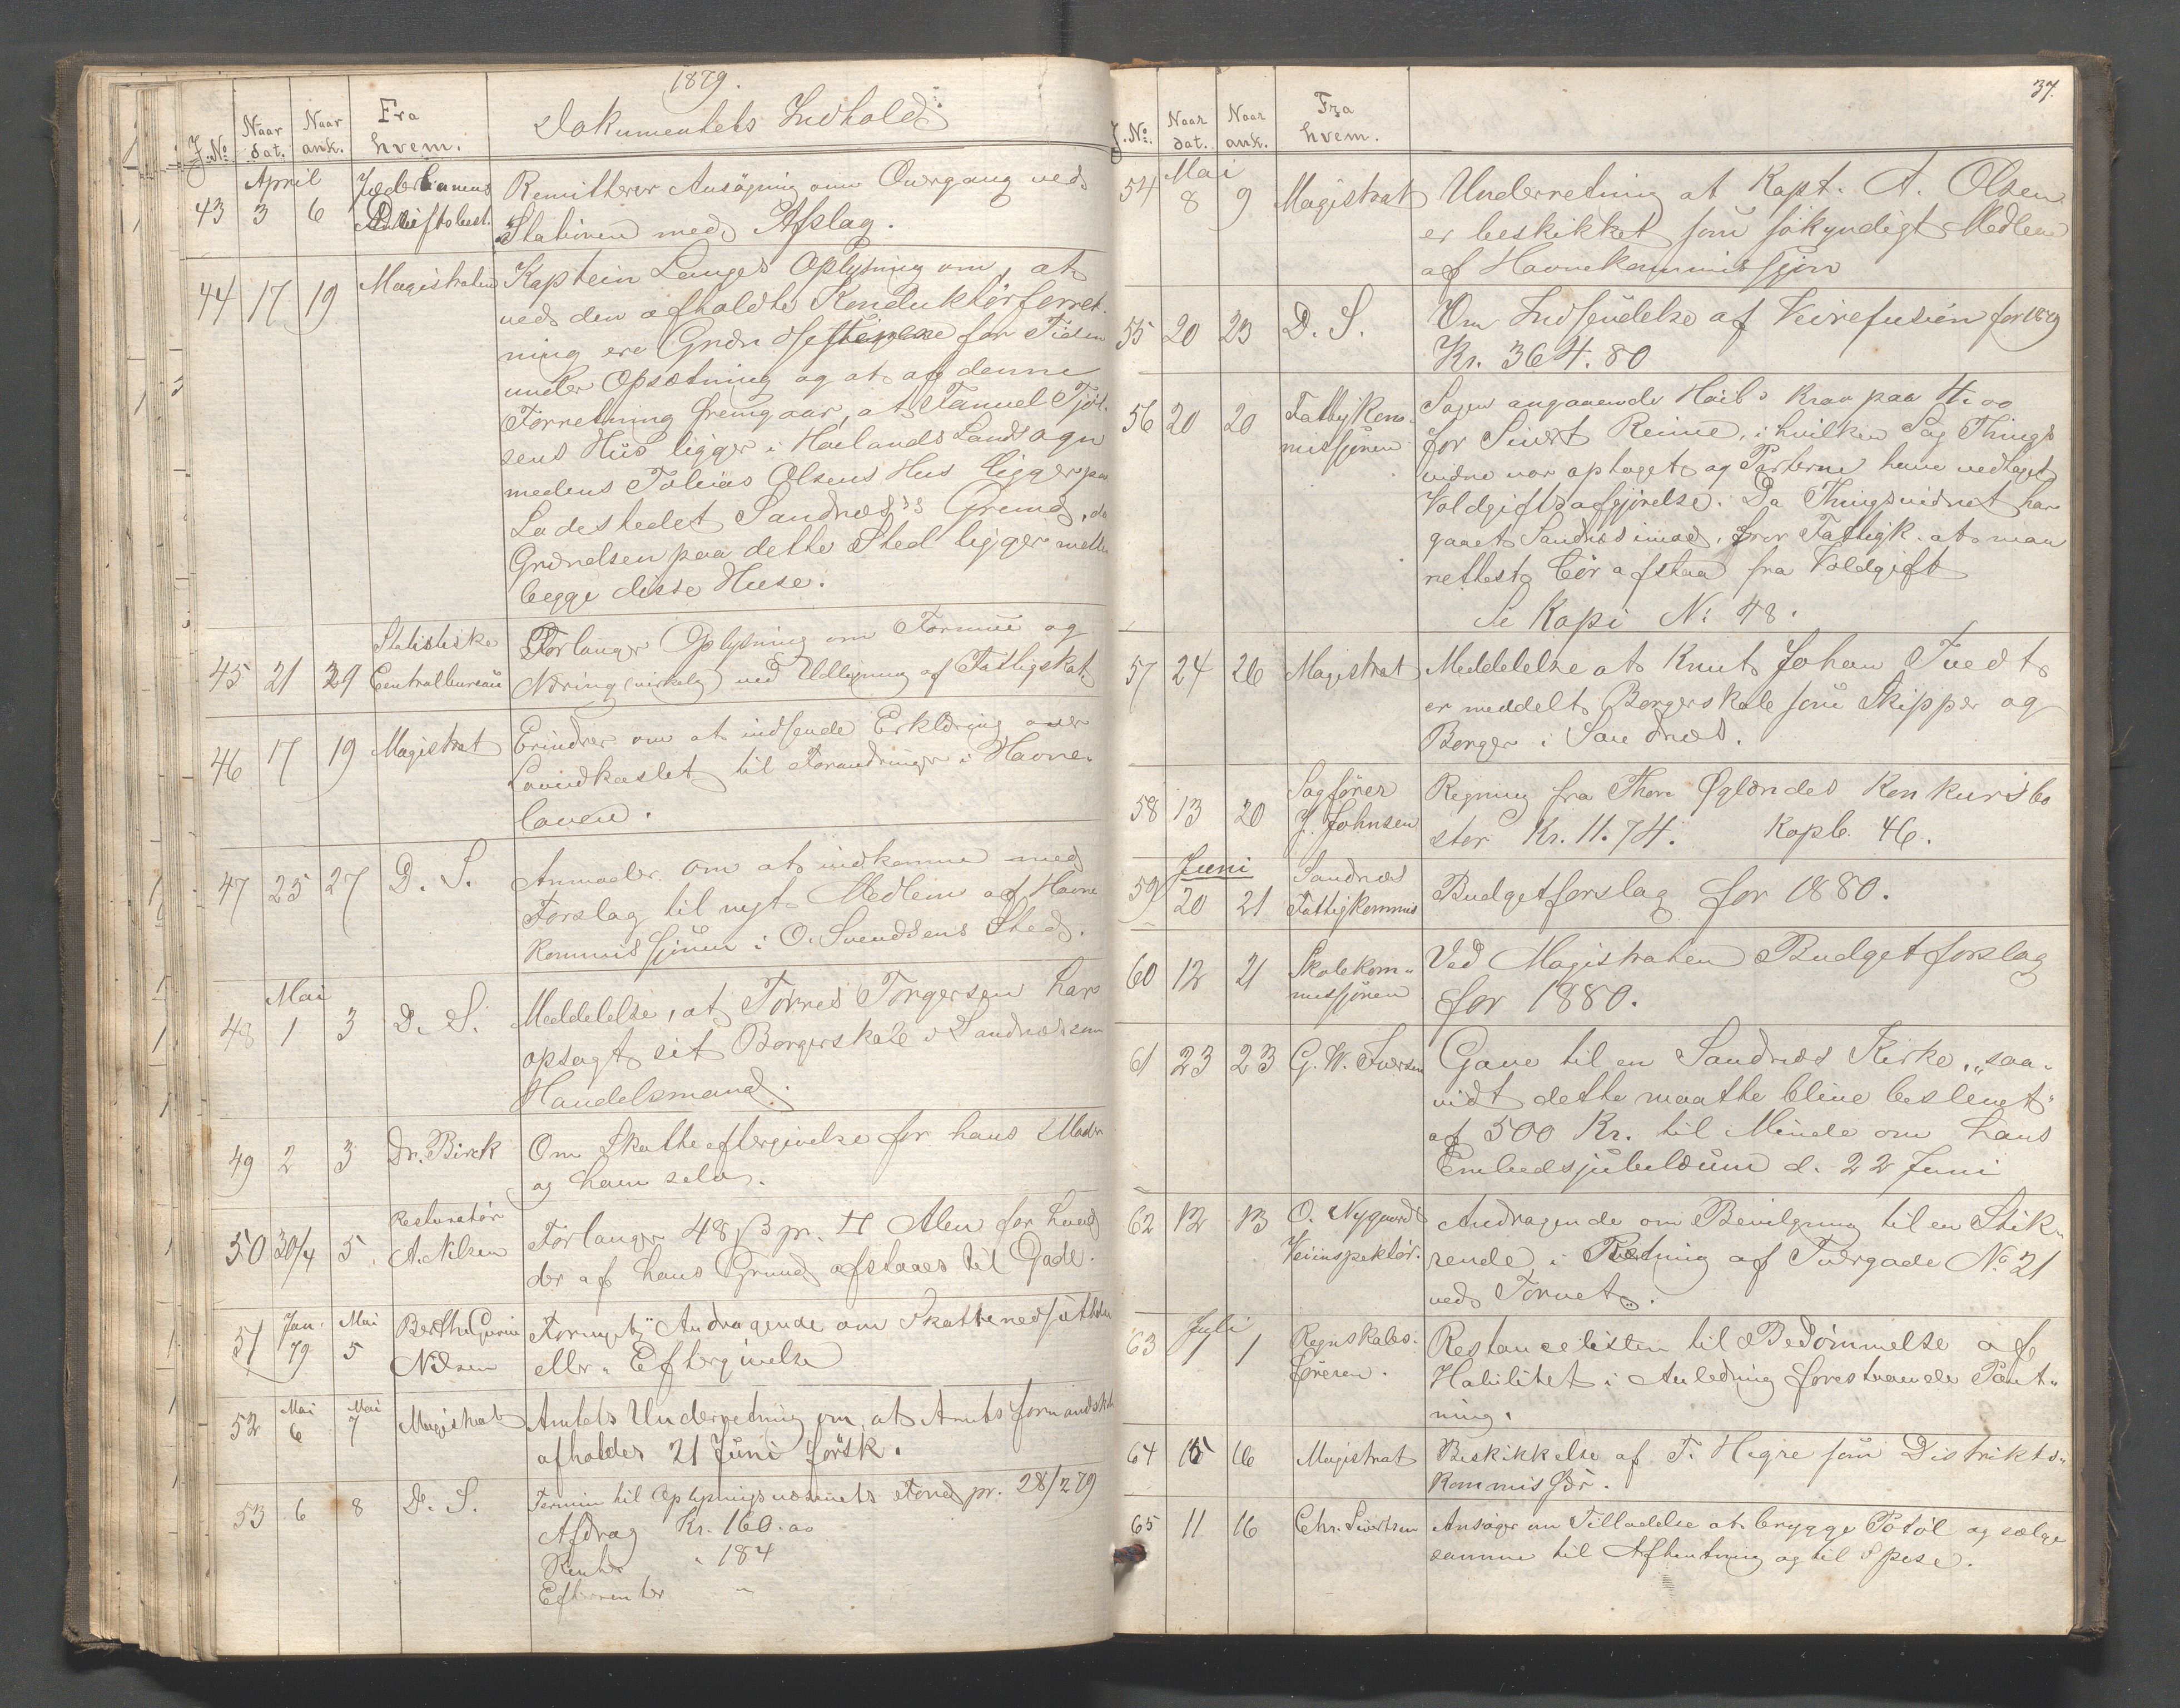 1879.
J. No Naar dat. Naar ank. Fra hvem. Dokumentets Indhold:
April
43 3 6 Jæderbanens Driftsbest. Remitterer Ansøgning om Overgang ved
Stationen med Afslag.
44 17 19 Magistraten Kaptein Langes Oplysning om, at
ved den afholdte Konduktørforret-
ning ere Grdn. for Tiden
under Opsætning og at af denne
Forretning fremgaar, at Samuel
sens Hus ligger i Høilands Landsogn
medens Tobias Olsens Hus ligger paa
Ladestedet Sandnæs's Grund, da
Grdnelsen paa dette Sted ligger mellem
begge disse Huse.
45 21 29 Statistiske Centralbureau Forlanger Oplysning om Formue og
Næring (virkelig) ved Udligning af Fattigskat.
46 17 19 Magistrat Erindrer om at indsende Erklæring over
Lovudkastet til Forandringer i Havne-
loven.
47 25 27 D. S. Anmoder om at indkomme med
Forslag til nyt Medlem af Havne
kommissjonen i O. Svendsens Sted.
Mai
48 1 3 D. S. Meddelelse, at Tørres Torgersen har
opsagt sit Borgerskab i Sandnæs som
Handelsmand.
49 2 3 Dr. Birck Om Skatteeftergivelse for hans Moder
og ham selv.
50 30/4 5. Restoratør A. Nilsen Forlanger 48 ß pr. □ Alen for hvad
der af hans Grund afstaaes til Gade.
51 Jan. 79 Mai 5 Berthe Gurine Nilsen Fornyet Andragende om Skattenedsættelse
eller Eftergivelse
52 Mai 6 Mai 7 Magistrat Amtets Underretning om, at Amtsformandskab
afholdes 21 Juni førstk.
53 6 8 D. S. Termin til Oplysningsvæsenets Fond pr. 28/2 79
Afdrag Kr. 160.00
Renter " 184
Efterrenter "
37.
J. No. Naar dat. Naar ank. Fra hvem.
Mai
54 8 9 Magistrat Underretning at Kapt. A. Olsen
er beskikket som søkyndigt Medlem
af Havnekommissjon
55 20 23 D. S. Om Indsendelse af Veirefusion for 1879
Kr. 364.80
56 20 20 Fattigkom- missjonen Sagen angaaende Krav paa
for Sivert Reime, i hvilken Sag Things
vidne var optaget og Parterne have vedtaget
Voldgiftsafgjørelse. Da Thingsvidnet har
gaaet Sandnæs imod, tror Fattigk. at man
rettest bør afstaa fra Voldgift
Se Kopi No 48.
57 24 26 Magistrat Meddelelse at Knut Johan Tvedt
er meddelt Borgerskab som Skipper og
Borger i Sandnæs.
58 13 20 Sagfører J. Johnsen Regning fra Thore Øglændes Konkursbo
stor Kr. 11.74. Kopb. 46.
Juni
59 20 21 Sandnæs Fattigkommis Budgetforslag for 1880.
60 12 21 Skolekom- missjonen Ved Magistraten Budgetforslag
for 1880.
61 23 23 G. W. Gave til en Sandnæs Kirke, „saa-
vidt dette maatte blive beslvet"
af 500 Kr. til Minde om hans
Embedsjubelæum d. 22 Juni
62 12 13 O. Nygaard Veiinspektør. Andragende om Bevilgning til en Stik-
rende i Retning af Tværgade No 21
ved Torvet.
Juli
63 1 1 Regnskabs- føreren. Restancelisten til Bedømmelse af
Habilitet i Anledning forestaaende Pant-
ning.
64 15 16 Magistrat Beskikkelse af T. Hegre som Distrikts-
kommissær.
65 11 16 Chr. Sivertsen Ansøger om Tilladelse at brygge Potøl og sælge
samme til Afhentning og til Spise.